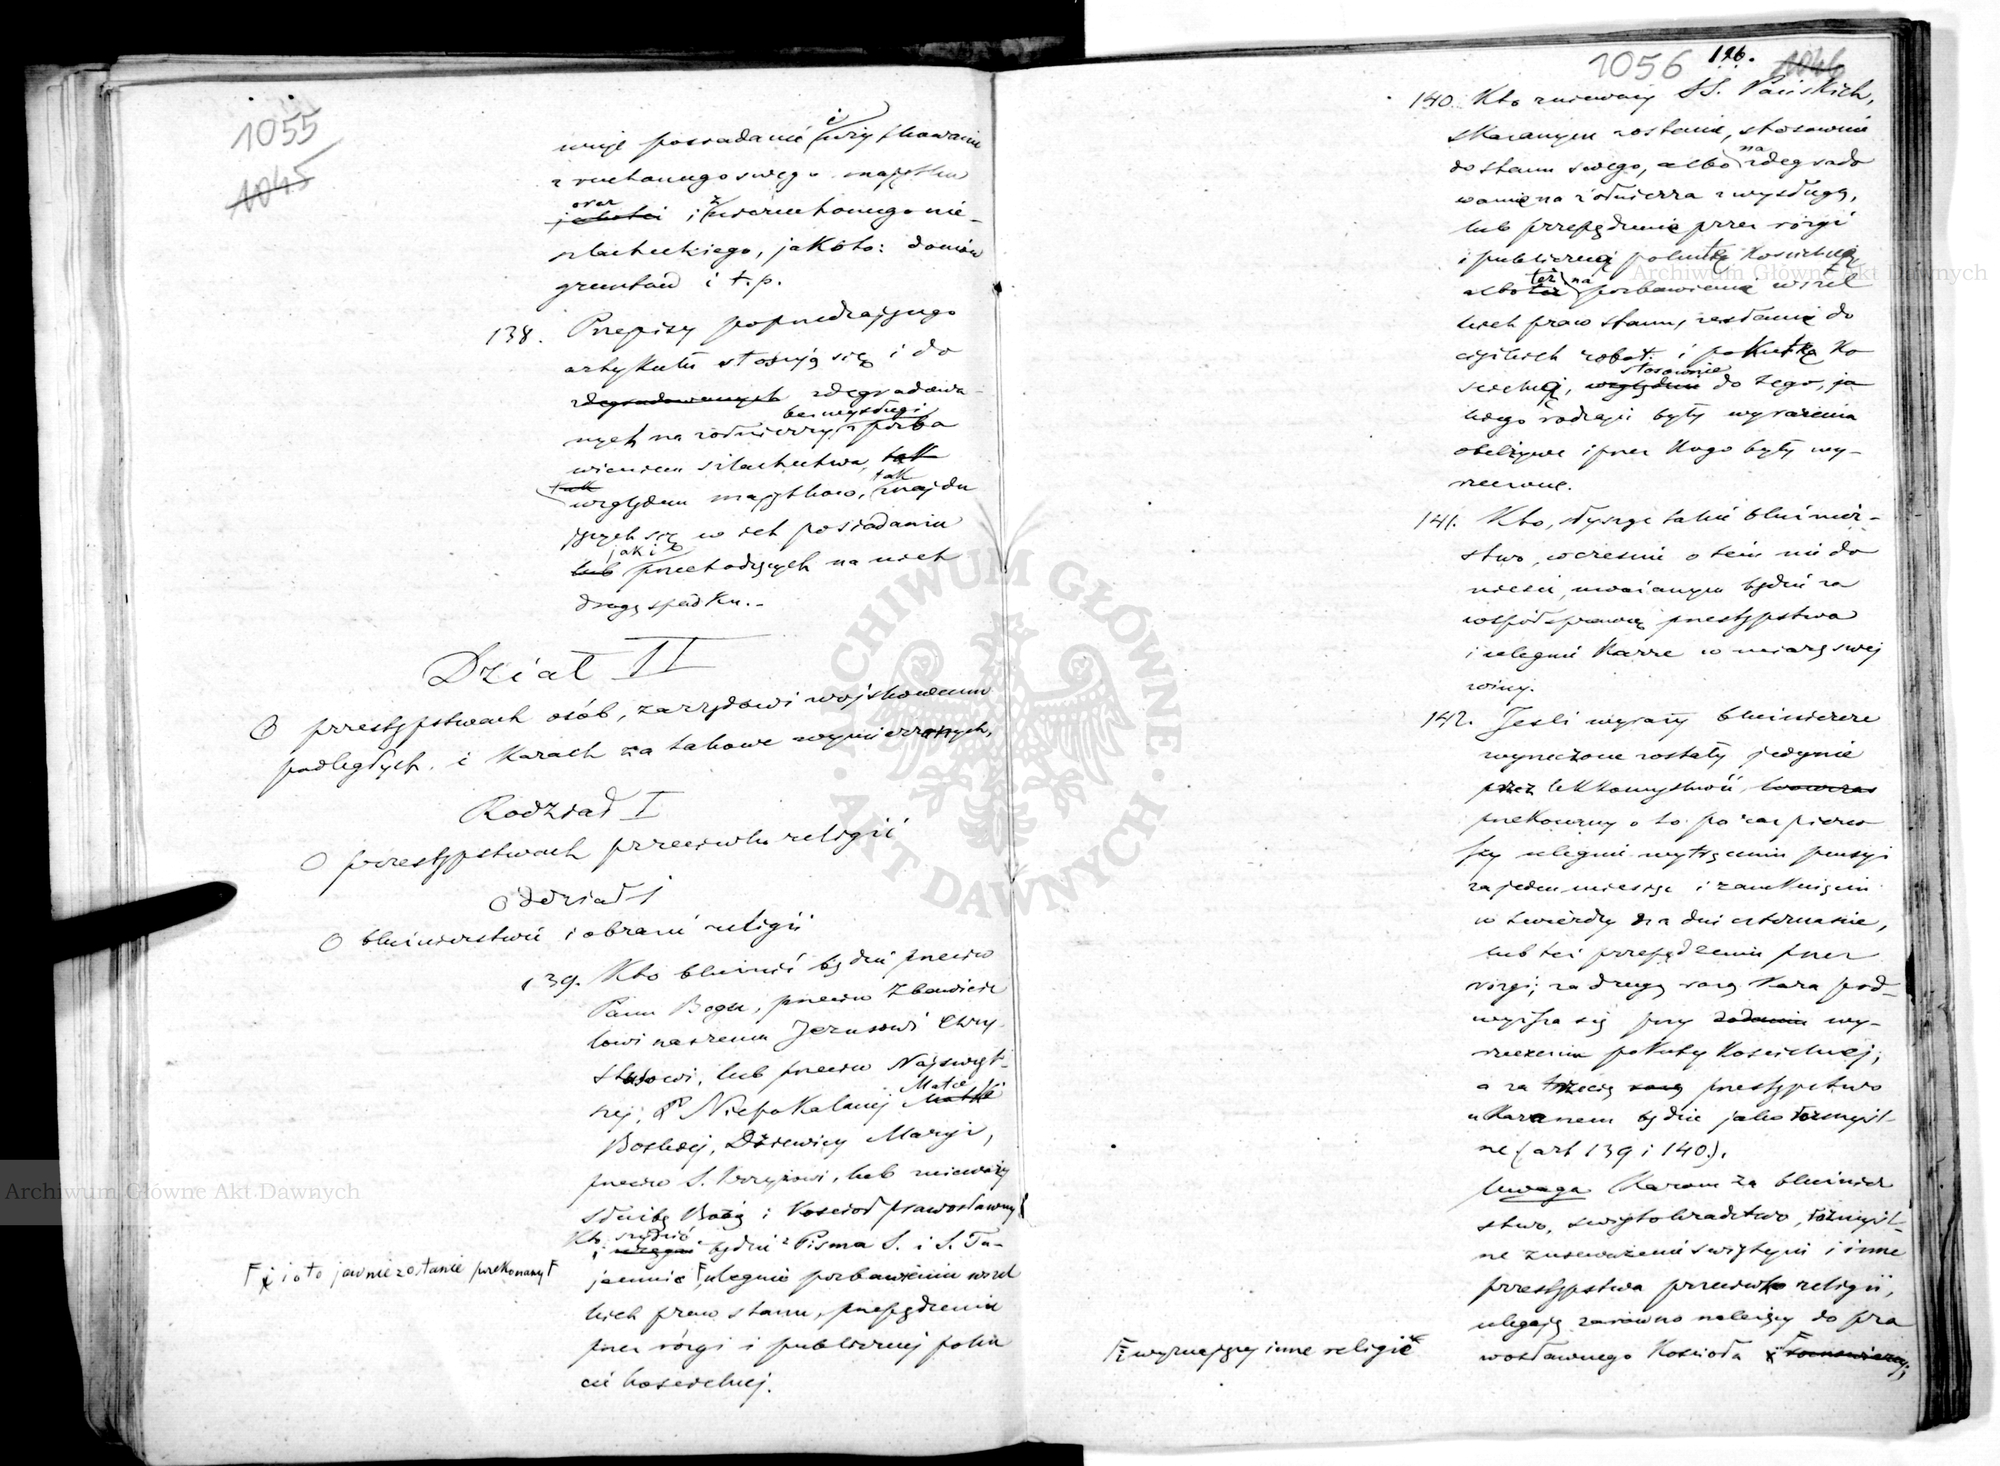 1055
1045
muje posiadanie i użytkowanie
z ruchomego swego majątku
oraz
jakoteż i z nieruchomego nie-
szlacheckiego, jakoto: domów
gruntów i t. p.
138. Przepisy poprzedzającego
artykułu stosują się i do
zdegradowanych zdegradowa-
bez wysługi
nych na żołnierzy z pozba
wieniem szlachectwa, tak
tak tak
względem majątków, znajdu
jących się w ich posiadaniu
jak i
lub przechodzących na nich
drogą spadku.-
Dział II
O przestępstwach osób, zarządowi wojskowemu
podległych i karach za takowe wymierzanych.
Rozdział I
O przestępstwach przeciwko religii
Oddział 1
O bluźnierstwie i obrazie religii
139. Kto bluźnić będzie przeciw
Panu Bogu, przeciw Zbawicie
lowi naszemu Jezusowi Chry-
stusowi, lub przeciw Najświęt-
szej, Niepokalanej Matce Matki
Boskiej, Dziewicy Maryi,
przeciw S. Krzyżowi, lub znieważy
służbę Bożą i Kościoł prawosławny
Kto szydzić
i urągać będzie z Pisma S. i S. Ta-
jemnic ulegnie pozbawieniu wszel
i o to jawnie zostanie przekonany
kich praw stanu, przepędzeniu
przez rózgi i publicznej poku
cie kościelnej.
1056 126. 1046
140. Kto znieważy SS. Pańskich,
skazanym zostanie, stosownie
do stanu swego, albo na zdegrado
wanie na żołnierza z wysługą,
lub przepędzenie przez rózgi
i publiczną pokutę kościelną
też na
albo też pozbawienie wszel
kich praw stanu, zesłanie do
ciężkich robot i pokutkę ko
stosownie
ścielną, względnie do tego, ja
kiego rodzaju były wyrażenia
obelżywe i przez kogo były wy-
rzeczone.
141. Kto, słysząc takie bluźnier-
stwo, wcześnie o tem nie do
niesie, uważanym będzie za
współsprawcę przestępstwa
i ulegnie karze w miarę swej
winy.
142. Jeśli wyrazy bluźniercze
wyrzeczone zostały jedynie
przez lekkomyślność, wówczas
przekonany o to po raz pierw
szy ulegnie wytrąceniu pensyi
za jeden miesiąc i zamknięciu
w twierdzy na dni czternaście,
lub też przepędzeniu przez
rózgi; za drugą razą kara pod-
wyższa się przy zadaniu wy-
rzeczeniu pokuty kościelnej;
a za trzecią razą przestępstwo
ukaranem będzie jako rozmyśl-
ne (art 139 i 140).
Uwaga Karom za bluźnier
stwo, świętokradztwo, rozmyśl-
ne znieważenie świątyni i inne
przestępstwa przeciwko religii,
ulegają zarówno należący do pra
wosławnego Kościoła i
i wyznający inne religie